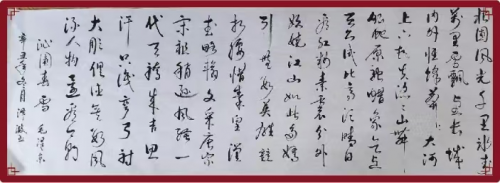 北国风光千里冰封
万里雪飘望长城
内外惟余莽莽大河
上下顿失滔滔山舞
银蛇原驰蜡象欲与
天公试比高须晴日
看红装素裹分外
妖娆江山如此多娇
引無数英雄競
折腰惜秦皇汉
武略输文采唐宗
宋祖稍逊风骚一
代天骄成吉思
汗只识弯弓射
大雕俱往矣数风
流人物還看今朝
沁园春雪 毛泽东
辛丑年